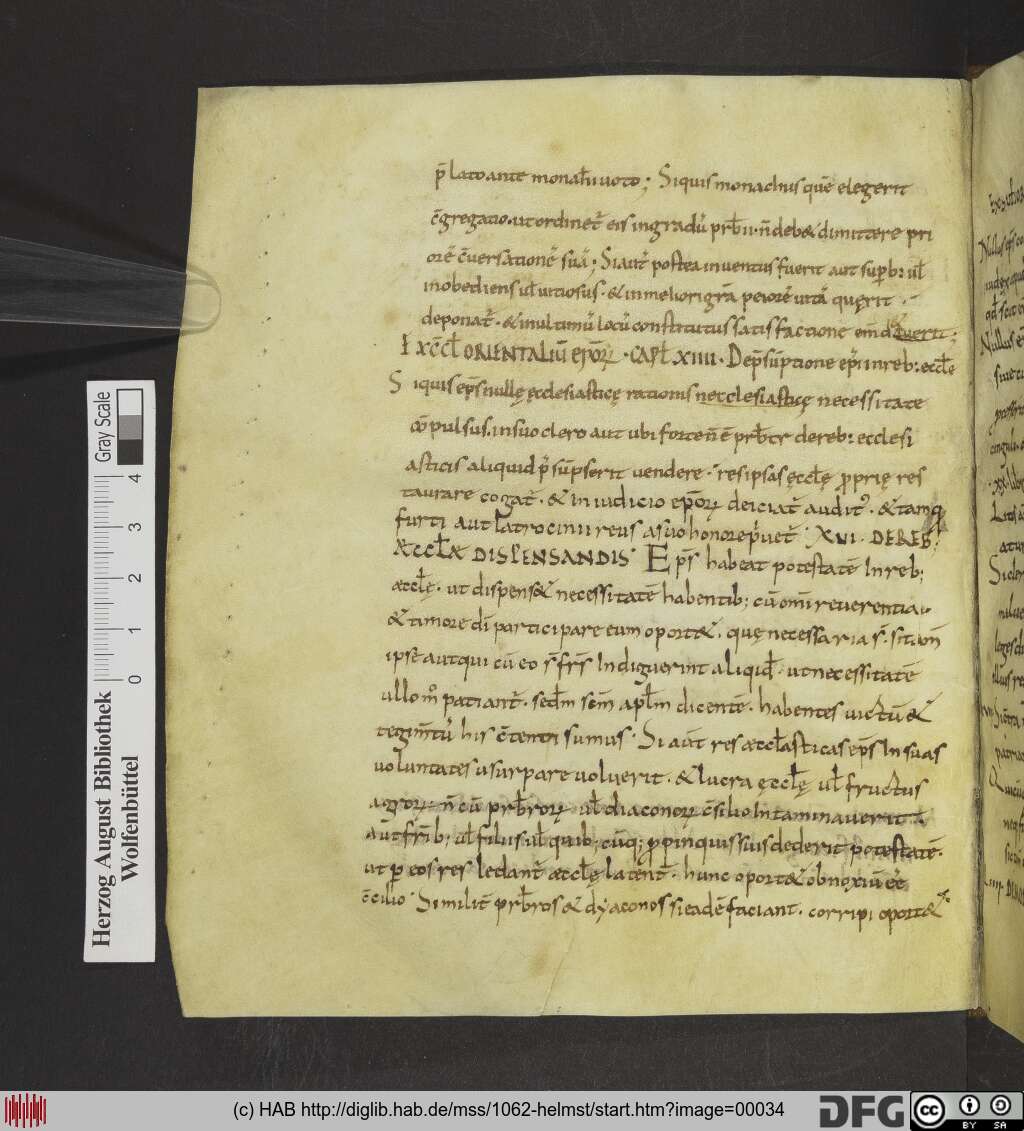 p̄lato ante monachi uoto; Siquis monachus quē elegerit
c̄gregatio. ut ordinet̄ eis in gradū prb̄ii. n̄ deb& dimittere pri
orē c̄uersationē suā; Si aut̄ postea inuentus fuerit aut supb: ul̄
inobediens ul̄ uitiosus. & in meliori grā peiorē uitā quęrit.
deponat̄. & in ultimū locū constitutus satisfactione
EX CC̄L ORIENTALIŪ EPŌRꝝ. CAPL̄ XIIII. De p̄sūptione epī in reb: eccl̄e
Siquis ep̄s nullę ęcclesiasticę rationis necclesiasticę necessitate
cō pulsus. in suo clero aut ubi forte n̄ ē prb̄tr de reb: ecclesi
asticis aliquid p̄sūpserit uendere. res ipsas ęccl̄ę ꝓprię res
taurare cogat̄. & in iudicio epōrꝝ deiciat̄ auditꝰ. & tamꝗ
furti aut latrocinii reus a suo honore p̄uet̄ XVI. DE REB:
ÆCCL̄Æ DISPENSANDIS Ep̄s habeat potestatē In reb;
æccl̄ę. ut dispens& necessitatē habentib; cū om̄i reuerentia.
& timore dī participare eum oport&. quę necessaria s̄. si tam̄
ipse aut qui cū eo s̄ fr̄s Indiguerint aliqid̄. ut necessitatē
ullo m̊ patiant̄. sed̄m sc̄m apl̄m dicentē. habentes uictū &
tegim̄tū his c̄tenti sumus Si aūt res æccl̄asticas ep̄s In suas
uoluntates usurpare uoluerit. & lucra ęccl̄ę ul̄ fructus
agrorꝝ n̄ cū prb̄rorꝝ ul̄ diaconorꝝ c̄silio Intaminauerit.
aūt fr̄ib; ul̄ filiis ul̄ quib; cūq; ꝓpinquis suis dederit potestatē.
ut p eos res ledant̄ æccl̄ę latent̄. hunc oport& obnoxiū eē
c̄cilio Similit̄ prb̄ros & dyaconos si eadē faciant. corripi oport&
Gray Scale
0 1 2 3 4
Herzog August Bibliothek
Wolfenbüttel
(c) HAB http://diglib.hab.de/mss/1062-helmst/start.htm?image=00034
DFG
cc BY SA